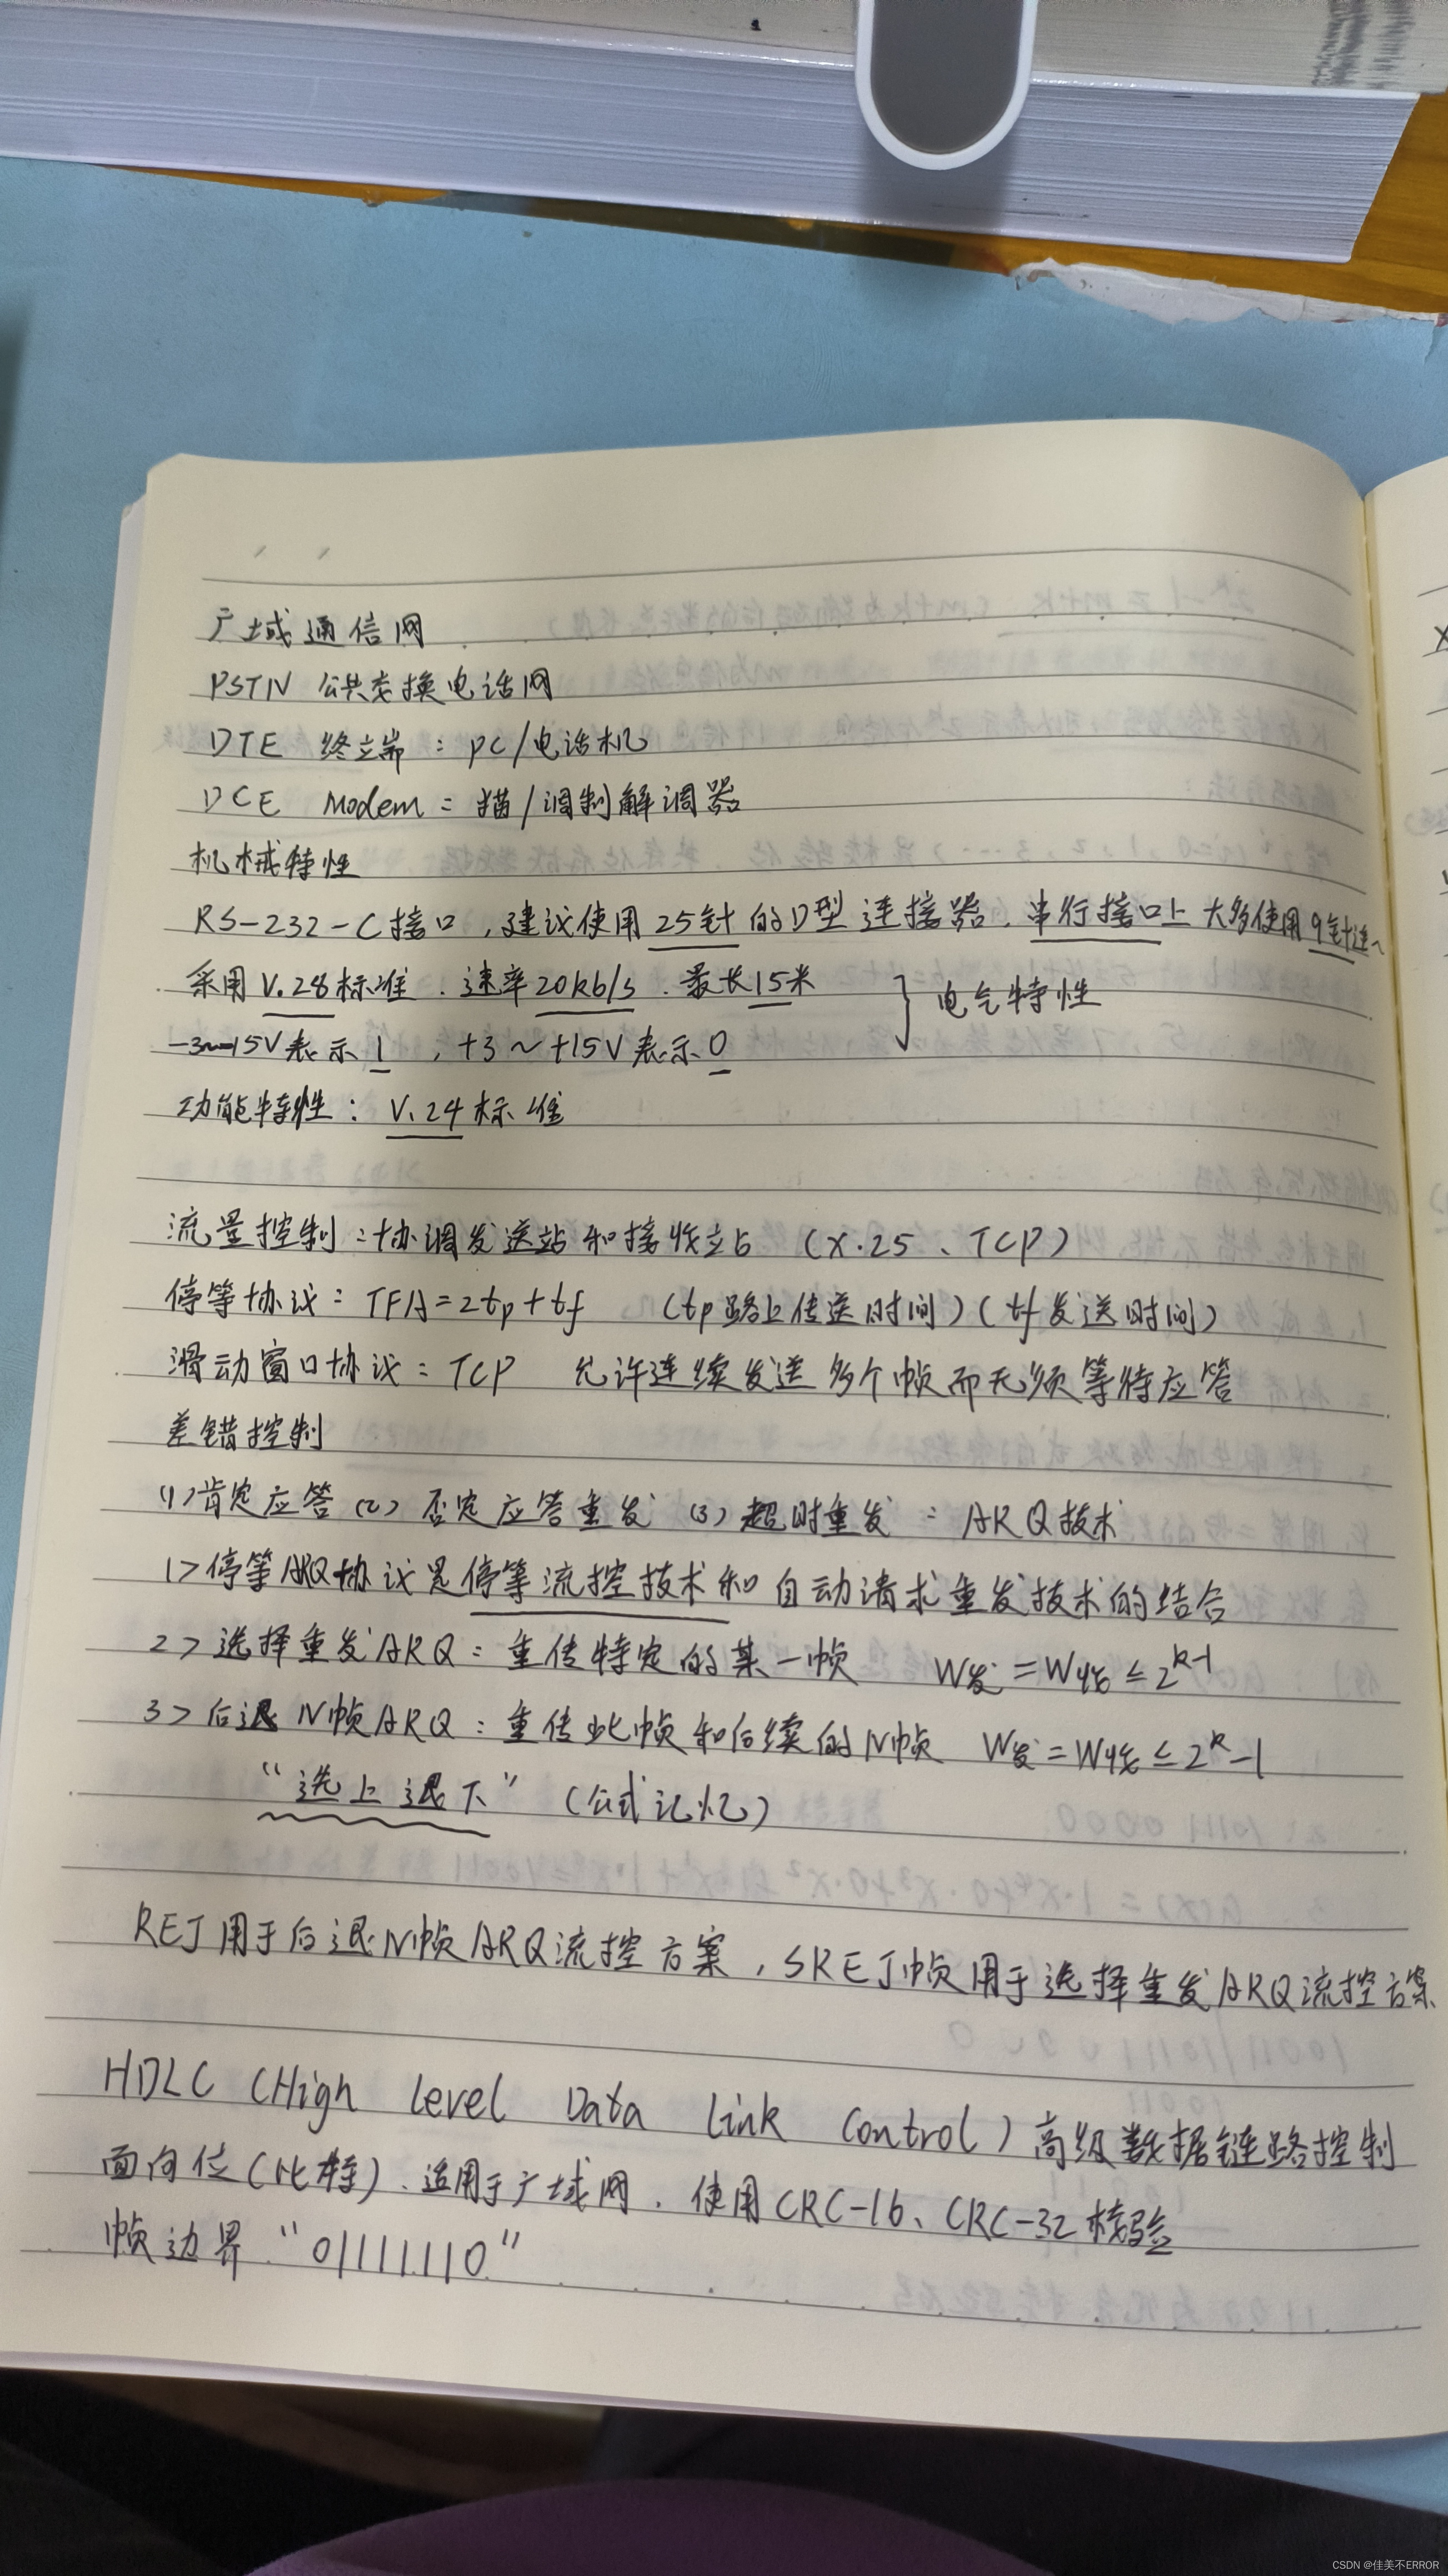 广域通信网
PSTN 公共交换电话网
DTE 终端：PC/电话机
DCE Modem：猫/调制解调器
机械特性
RS-232-C接口，建议使用25针的D型连接器，串行接口上大多使用9针连
采用V.28标准．速率20kb/s．最长15米 } 电气特性
-3~-15V表示1，+3~+15V表示0
功能特性：V.24标准
流量控制：协调发送站和接收站 (X.25、TCP)
停等协议：TFA=2tp+tf (tp路上传送时间)(tf发送时间)
滑动窗口协议：TCP 允许连续发送多个帧而无须等待应答
差错控制
(1)肯定应答(2)否定应答重发 (3)超时重发：ARQ技术
1>停等ARQ协议是停等流控技术和自动请求重发技术的结合
2>选择重发ARQ：重传特定的某一帧 W发=W收≤2^k-1
3>后退N帧ARQ：重传此帧和后续的N帧 W发=W收≤2^k-1
“选上退下”(公式记忆)
REJ用于后退N帧ARQ流控方案，SREJ帧用于选择重发ARQ流控方案
HDLC (High Level Data Link Control)高级数据链路控制
面向位(比特)．适用于广域网．使用CRC-16、CRC-32校验
帧边界“01111110”
CSDN @佳美不ERROR